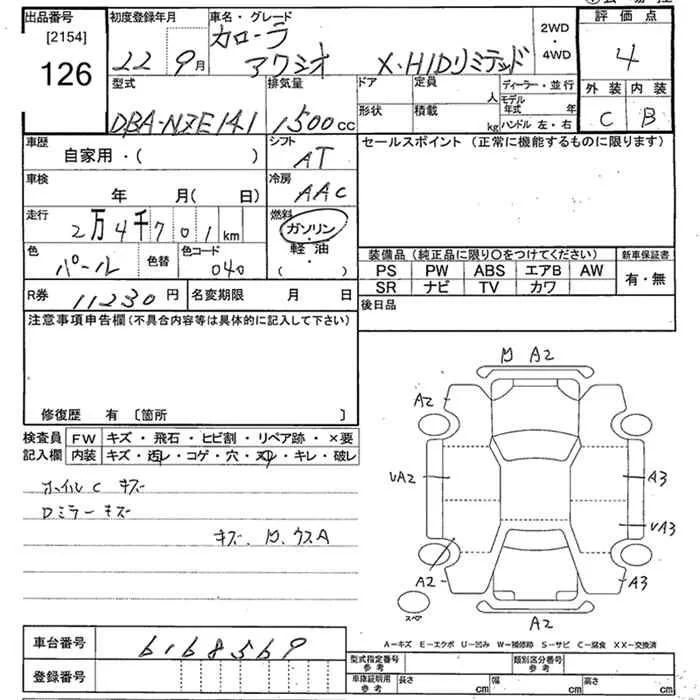 出品番号 初度登録年月 車名・グレード 2WD・4WD 評価点
[2154] 126 22 9月 カローラ アクシオ X・HIDリミテッド 4
型式 排気量 ドア 定員 人 ディーラー・並行 外装 内装
モデル年式 年
DBA-NZE141 1500cc 形状 積載 kg ハンドル 左・右 C B
車歴 シフト セールスポイント (正常に機能するものに限ります)
自家用・( ) AT
車検 冷房
年 月( 日) AAC
走行 燃料
2万4千701km ガソリン・軽油・( )
色 色替 色コード 装備品 (純正品に限り〇をつけてください) 新車保証書
パール 040 PS PW ABS エアB AW 有・無
SR ナビ TV カワ
R券 11230円 名変期限 月 日 後日品
注意事項申告欄(不具合内容等は具体的に記入して下さい)
修復歴 有 〔箇所 〕
検査員記入欄 FW キズ・飛石・ヒビ割・リペア跡・×要
内装 キズ・汚レ・コゲ・穴・スレ・キレ・破レ
ホイルC キズ
Dミラーキズ
キズ、
ウスA
A2
A2
UA2
A3
UA3
A2
A3
スペア
A2
A-キズ E-エクボ U-凹み W-補修跡 S-サビ C-腐食 XX-交換済
車台番号 6168569 型式指定番号 参考 類別区分番号 参考
登録番号 車庫証明用 参考 長さ cm 幅 cm 高さ cm